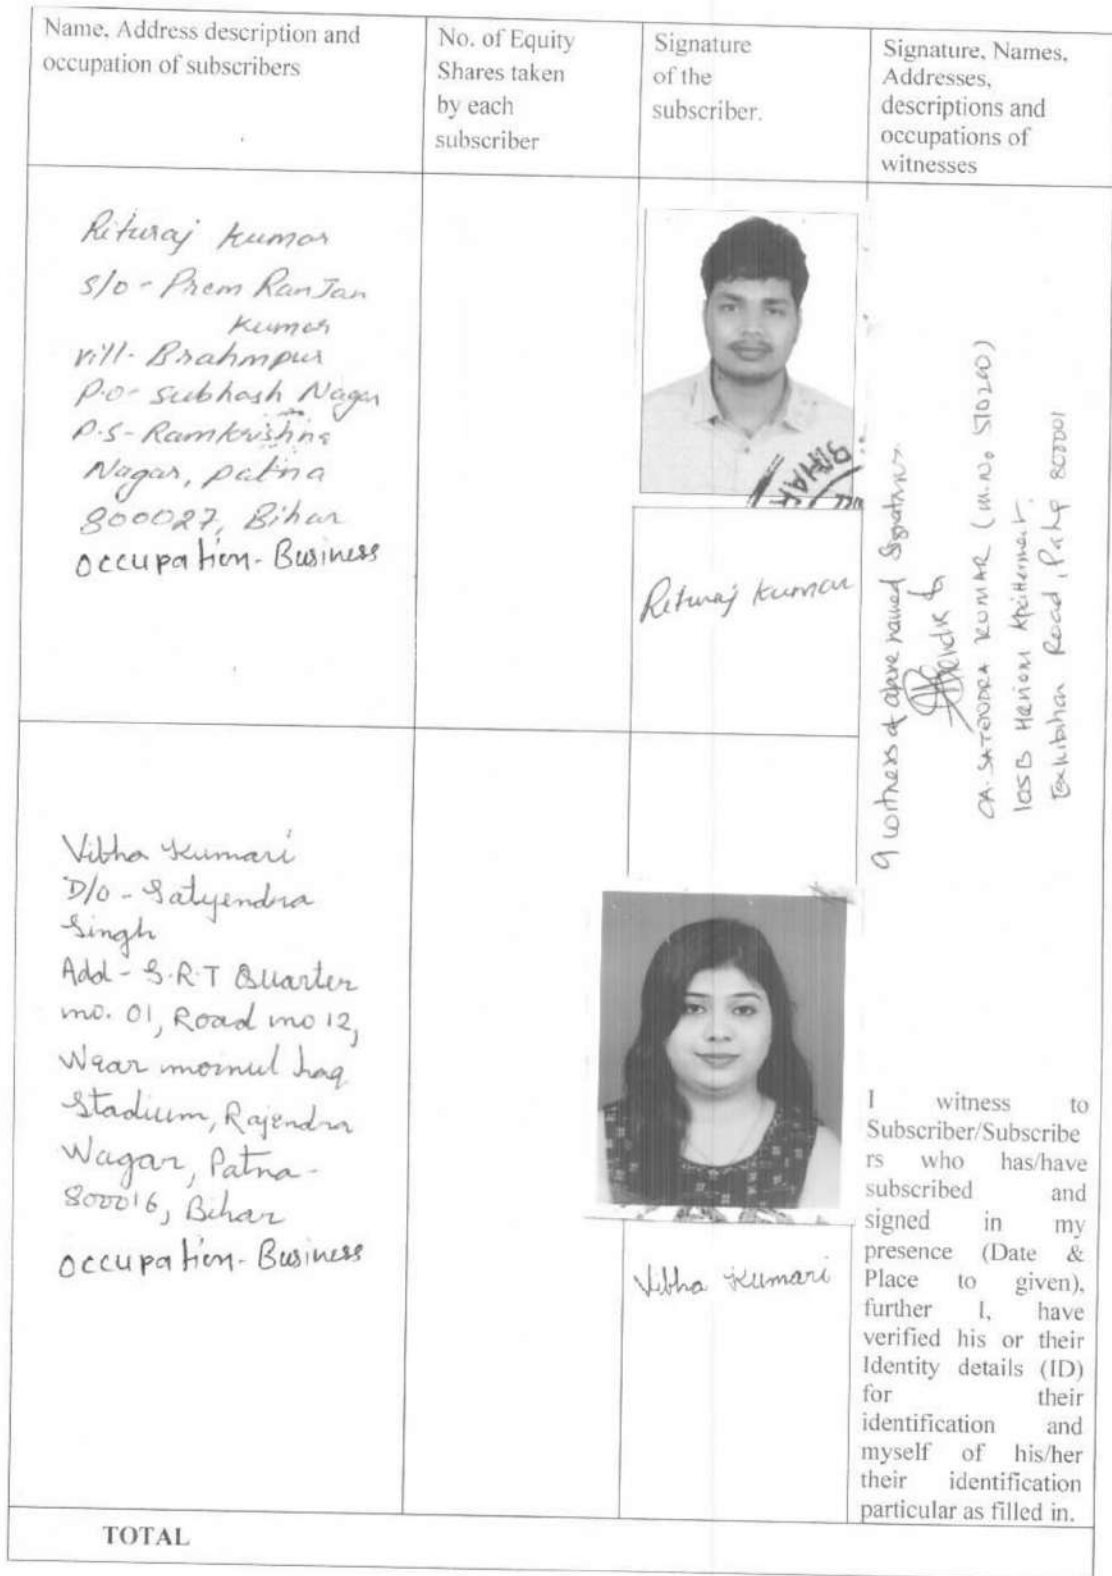 Name, Address description and
occupation of subscribers
No. of Equity
Shares taken
by each
subscriber
Signature
of the
subscriber.
Signature, Names,
Addresses,
descriptions and
occupations of
witnesses
Rituraj Kumar
S/o - Prem RanJan
Kumar
Vill- Brahmpur
P.o- Subhash Nagar
P.S- Ramkrishna
Nagar, patna
800027, Bihar
occupation- Business
BIHAR
Rituraj Kumar
witness of above named
CA. SATENDRA KUMAR (M.No 510200)
105B Hariom
Road, Patna 800001
Vibha Kumari
D/o - Satyendra
Singh
Add - S.R.T Quarter
no. 01, Road no 12,
Near moinul haq
Stadium, Rajendra
Nagar, Patna-
800016, Bihar
occupation- Business
Vibha Kumari
I witness to
Subscriber/Subscribe
rs who has/have
subscribed and
signed in my
presence (Date &
Place to given),
further I, have
verified his or their
Identity details (ID)
for their
identification and
myself of his/her
their identification
particular as filled in.
TOTAL